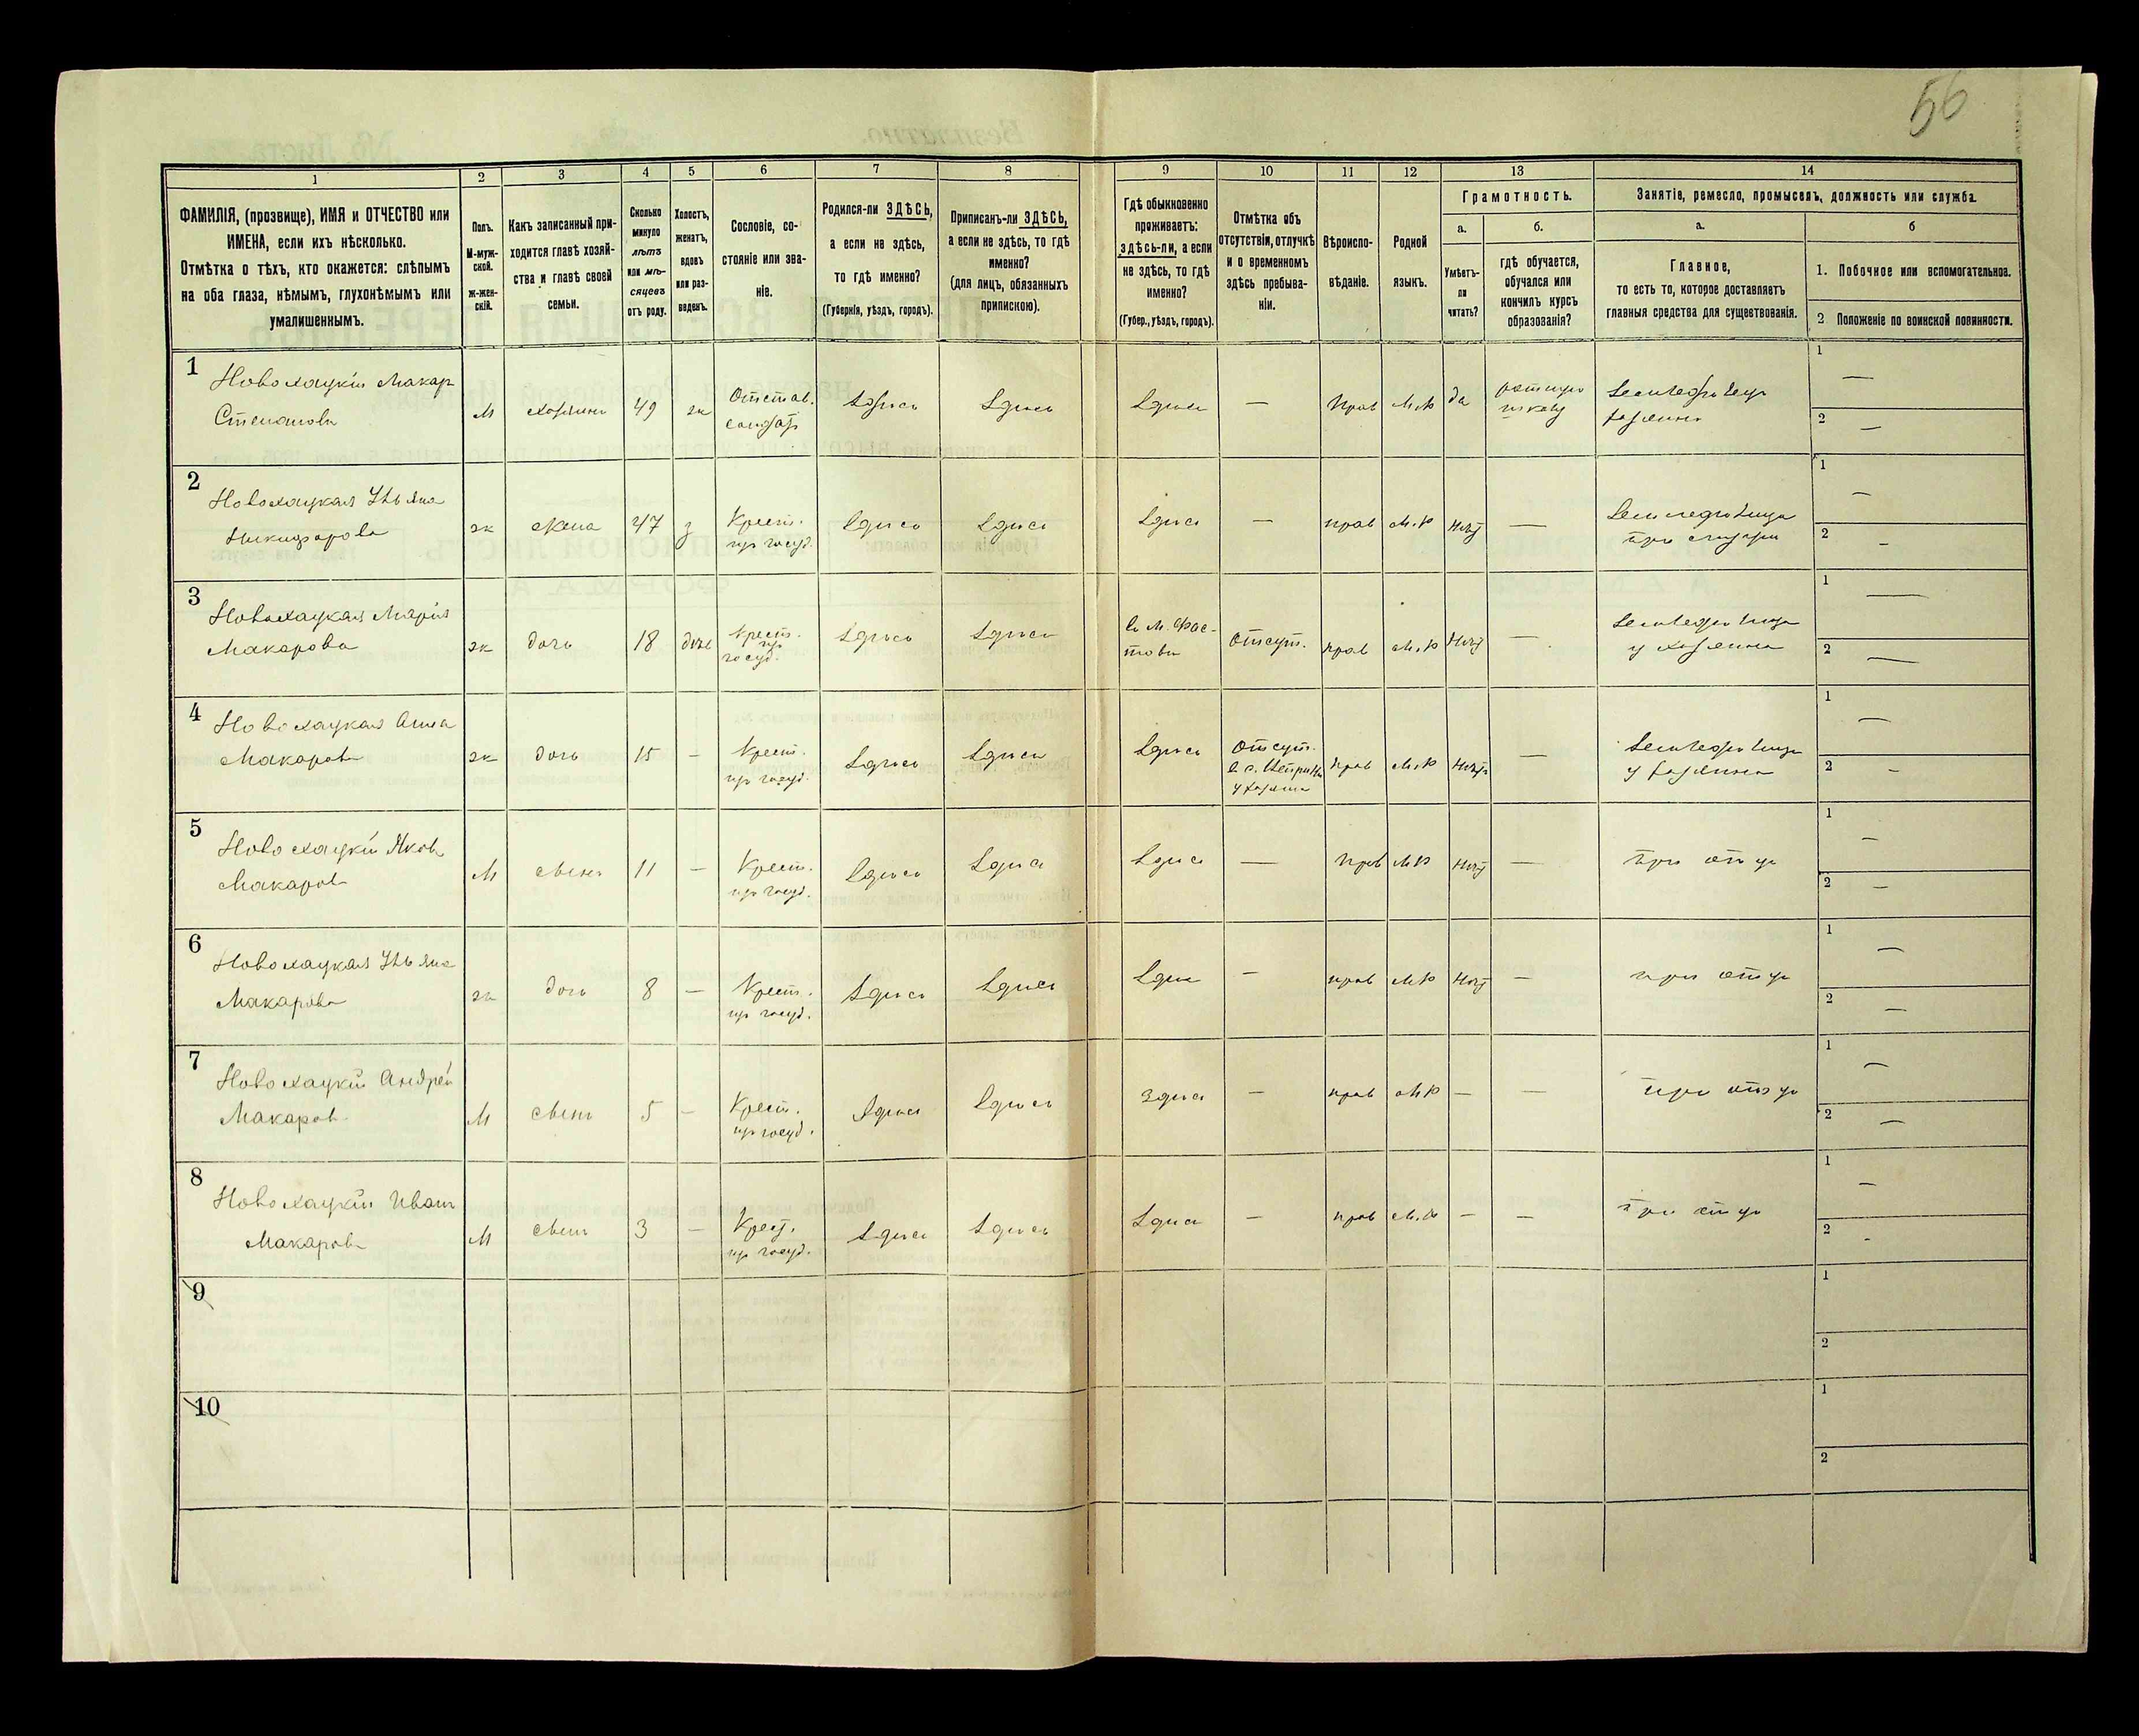 56
1
2
3
4
5
6
7
8
9
10
11
12
13
14
ФАМИЛІЯ, (прозвище), ИМЯ и ОТЧЕСТВО или
ИМЕНА, если ихъ нѣсколько.
Отмѣтка о тѣхъ, кто окажется: слѣпымъ
на оба глаза, нѣмымъ, глухонѣмымъ или
умалишеннымъ.
Полъ.
М-муж-
ской.
ж-жен-
скій.
Какъ записанный при-
ходится главѣ хозяй-
ства и главѣ своей
семьи.
Сколько
минуло
лѣтъ
или мѣ-
сяцевъ
отъ роду.
Холостъ,
женатъ,
вдовъ
или раз-
веденъ.
Сословіе, со-
стояніе или зва-
ніе.
Родился-ли ЗДѢСЬ,
а если не здѣсь,
то гдѣ именно?
(Губернія, уѣздъ, городъ).
Приписанъ-ли ЗДѢСЬ,
а если не здѣсь, то гдѣ
именно?
(для лицъ, обязанныхъ
припискою).
Гдѣ обыкновенно
проживаетъ:
здѣсь-ли, а если
не здѣсь, то гдѣ
именно?
(Губер., уѣздъ, городъ).
Отмѣтка объ
отсутствіи, отлучкѣ
и о временномъ
здѣсь пребыва-
ніи.
Вѣроиспо-
вѣданіе.
Родной
языкъ.
Грамотность.
а.
Умѣетъ-
ли
читать?
б.
гдѣ обучается,
обучался или
кончилъ курсъ
образованія?
Занятіе, ремесло, промыселъ, должность или служба.
а.
Главное,
то есть то, которое доставляетъ
главныя средства для существованія.
б
1. Побочное или вспомогательное.
2 Положеніе по воинской повинности.
1
Новохацкій Макар
Степанова
М
хозяинъ
49
ж
Отстав.
солдат
Здѣсь
Здѣсь
Здѣсь
—
Прав
М.Р
да
школу
Земледѣлец
хозяинъ
1 —
2 —
2
Новохацкая Ульяна
Никифорова
ж
жена
47
з
Крест.
из госуд.
Здѣсь
Здѣсь
Здѣсь
—
прав
М.Р
нѣт
—
Земледѣлица
при
1 —
2 —
3
Новохацкая Марія
Макарова
ж
дочь
18
Крест.
из
госуд.
Здѣсь
Здѣсь
в М. Фас-
тови
Отсут.
прав
М.Р
нѣт
—
Земледѣлица
у хозяина
1 —
2 —
4
Новохацкая Анна
Макаров
ж
дочь
15
—
Крест.
из госуд.
Здѣсь
Здѣсь
Здѣсь
Отсут.
в с.
у хозяина
прав
М.Р
нѣт
—
Земледѣлица
у хозяина
1 —
2 —
5
Новохацкій Яков
Макаров
М
сын
11
—
Крест.
из госуд.
Здѣсь
Здѣсь
Здѣсь
—
прав
М.Р
нѣт
—
при отце
1 —
2 —
6
Новохацкая Ульяна
Макарова
ж
дочь
8
—
Крест.
из госуд.
Здѣсь
Здѣсь
Здѣсь
—
прав
М.Р
нѣт
—
при отце
1 —
2 —
7
Новохацкій Андрей
Макаров
М
сын
5
—
Крест.
из госуд.
Здѣсь
Здѣсь
Здѣсь
—
прав
М.Р
—
—
при отце
1 —
2 —
8
Новохацкій Иван
Макаров
М
сын
3
—
Крест.
из госуд.
Здѣсь
Здѣсь
Здѣсь
—
прав
М.Р
—
—
при отце
1 —
2 -
9
1
2
10
1
2